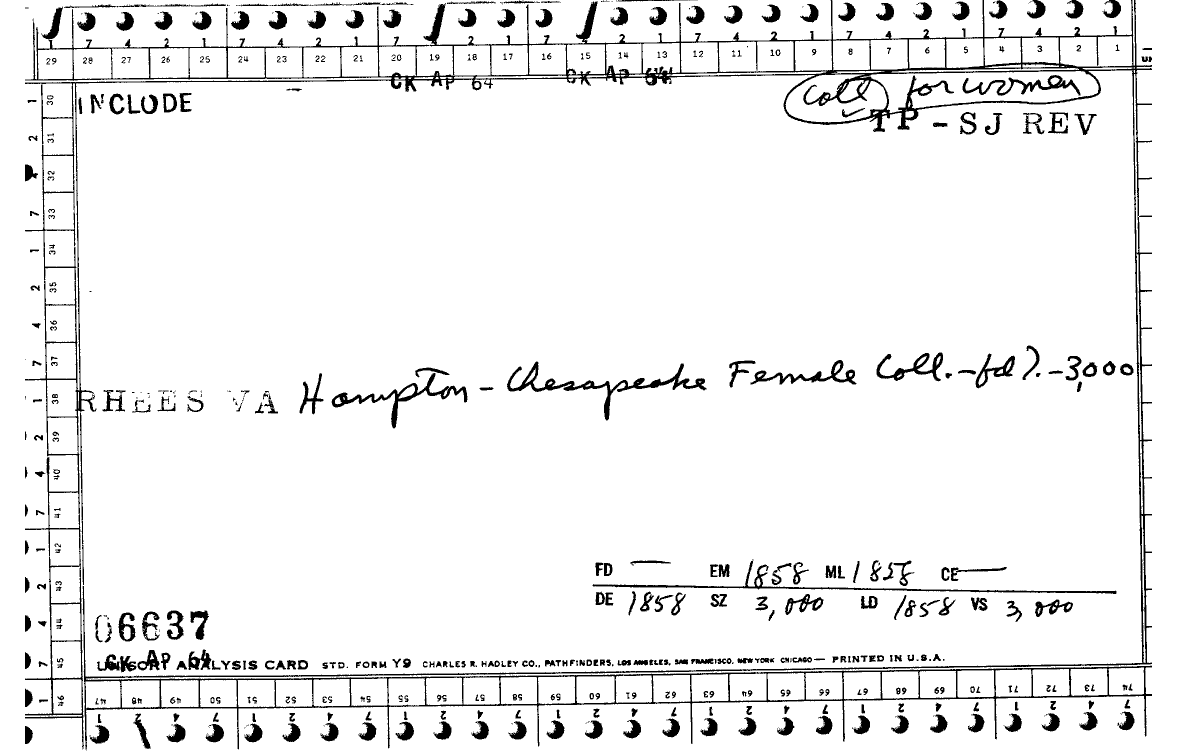 7 4 2 1 7 4 2 1 7 2 1 7 2 1 7 4 2 1 7 4 2 1 7 4 2 1
29 28 27 26 25 24 23 22 21 20 19 18 17 16 15 14 13 12 11 10 9 8 7 6 5 4 3 2 1
CK AP 64 CK AP 64
INCLUDE
Coll for women
TP - SJ REV
1 30
2 31
4 32
7 33
1 34
2 35
4 36
7 37
1 38
2 39
4 40
7 41
1 42
2 43
4 44
7 45
1 46
RHEES VA Hampton - Chesapeake Female Coll. - fd ?. - 3,000
FD — EM 1858 ML 1858 CE —
DE 1858 SZ 3,000 LD 1858 VS 3,000
06637
CK AP 64
UNISORT ANALYSIS CARD STD. FORM Y9 CHARLES R. HADLEY CO., PATHFINDERS, LOS ANGELES, SAN FRANCISCO, NEW YORK CHICAGO — PRINTED IN U.S.A.
47 48 49 50 51 52 53 54 55 56 57 58 59 60 61 62 63 64 65 66 67 68 69 70 71 72 73 74
1 2 4 7 1 2 4 7 1 2 4 7 1 2 4 7 1 2 4 7 1 2 4 7 1 2 4 7